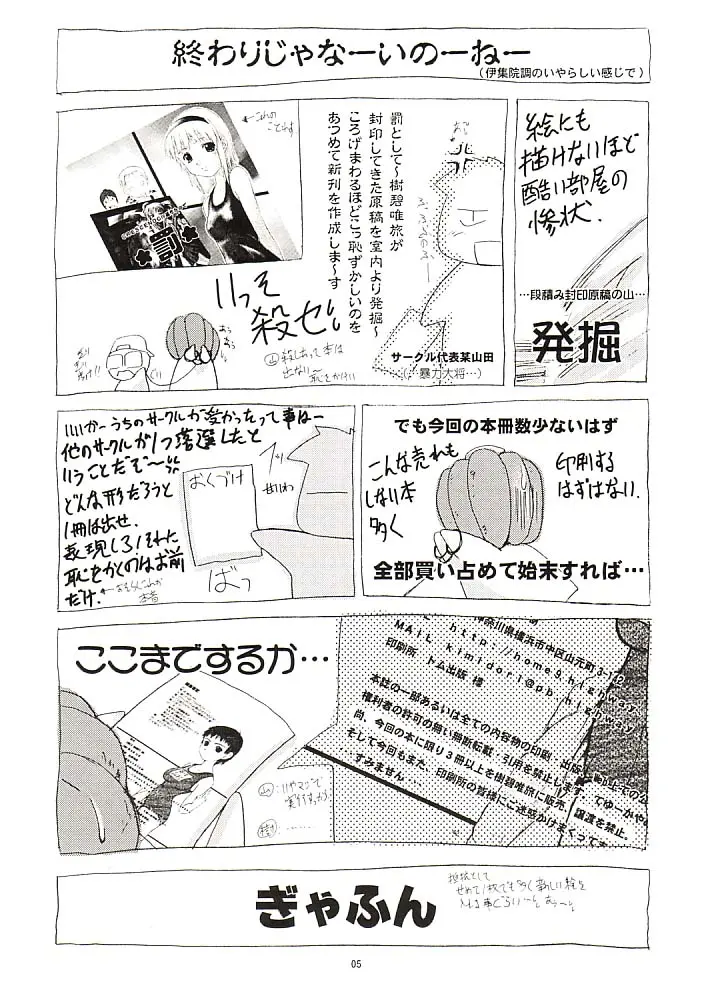 終わりじゃなーいのーねー
(伊集院調のいやらしい感じで)
絵にも
描けないほど
酷い部屋の
惨状.
…段積み封印原稿の山…
発掘
罰として〜樹碧唯旅が
封印してきた原稿を室内より発掘〜
ころげまわるほどこっ恥ずかしいのを
あつめて新刊を作成しま〜す
サークル代表某山田
(…暴力大将…)
←これの
ことらす
罰
いっそ
殺せ
でも今回の本冊数少ないはず
こんな売れも
しない本
多く
印刷する
はずはない.
全部買い占めて始末すれば…
いいかーうちのサークルが受かったって事はー
他のサークルが1つ落選したと
いうことだぞ〜
どんな形だろうと
1冊は出せ.
表現しろ!それた
恥をかくのはお前
だけ.
←おそらくこれが
本音
おくづけ
ばっ
ここまでするか…
神奈川県横浜市中区山元町3-1
http://home9.highway
MAIL kimidori@pb.highway
印刷所 トム出版 様
本誌の一部あるいは全ての内容物の印刷・出版
権利者の許可の無い無断転載、引用を禁止します
尚、今回の本に限り3冊以上を樹碧唯旅に販売、譲渡を禁止。
そして今回もまた、印刷所の皆様にご迷惑かけまくって
…すみません…
ぎゃふん
抵抗として
せめて1枚でも多く新しい絵を
05